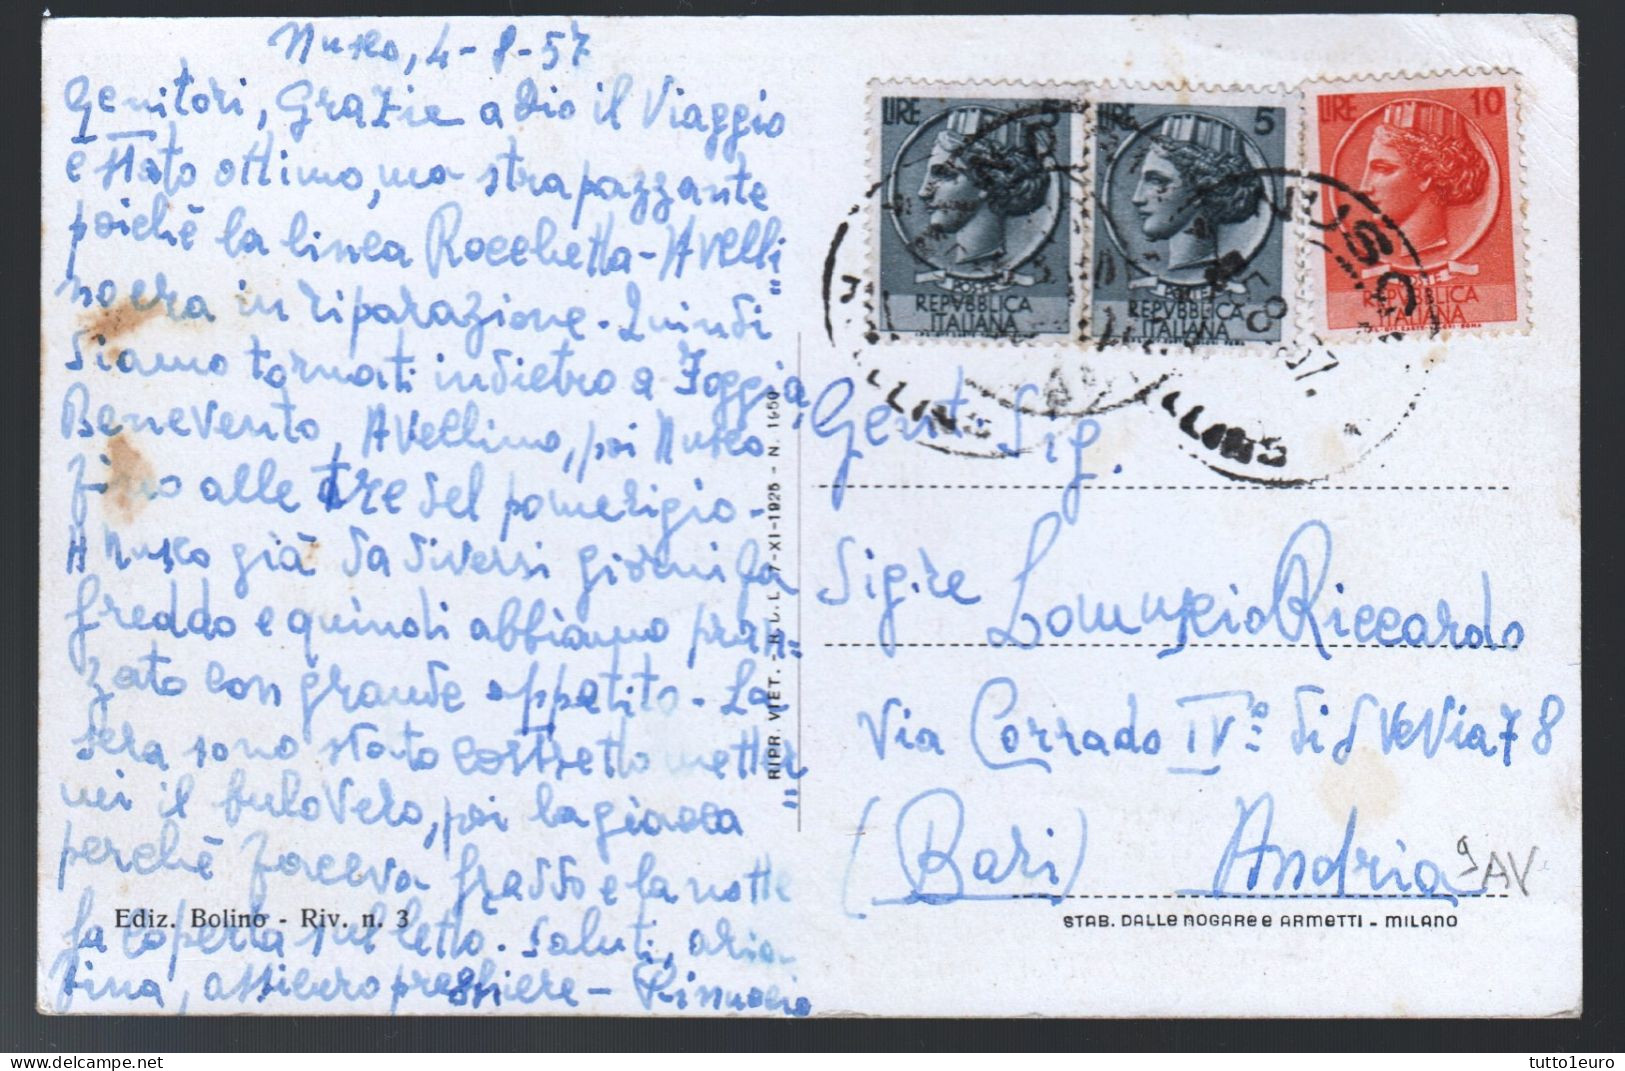 Nusco, 4-8-57
Genitori, Grazie a Dio il Viaggio
è stato ottimo, ma strapazzante
poichè la linea Rocchetta-Avelli
no era in riparazione. Quindi
siamo tornati indietro a Foggia,
Benevento, Avellino, poi Nusco
fino alle tre del pomerigio-
A Nusco già da diversi giorni fa
freddo e quindi abbiamo pran=
zato con grande appetito- La
sera sono stato costretto metter
mi il pulovero, poi la giacca
perchè faceva freddo e la notte
la coperta sul letto. Saluti,
assicuro preghiere -
Ediz. Bolino - Riv. n. 3
" RIPR. VIET. - R.D.L. 7-XI-1925 - N. 1950 "
LIRE 5
POSTE
REPVBBLICA
ITALIANA
LIRE 5
POSTE
REPVBBLICA
ITALIANA
LIRE 10
POSTE
REPVBBLICA
ITALIANA
NUSCO
Gent. Sig.
Sig.re Riccardo
Via Corrado IV° di Svevia 78
(Bari) Andria
AV
STAB. DALLE NOGARE e ARMETTI - MILANO
tutto1euro